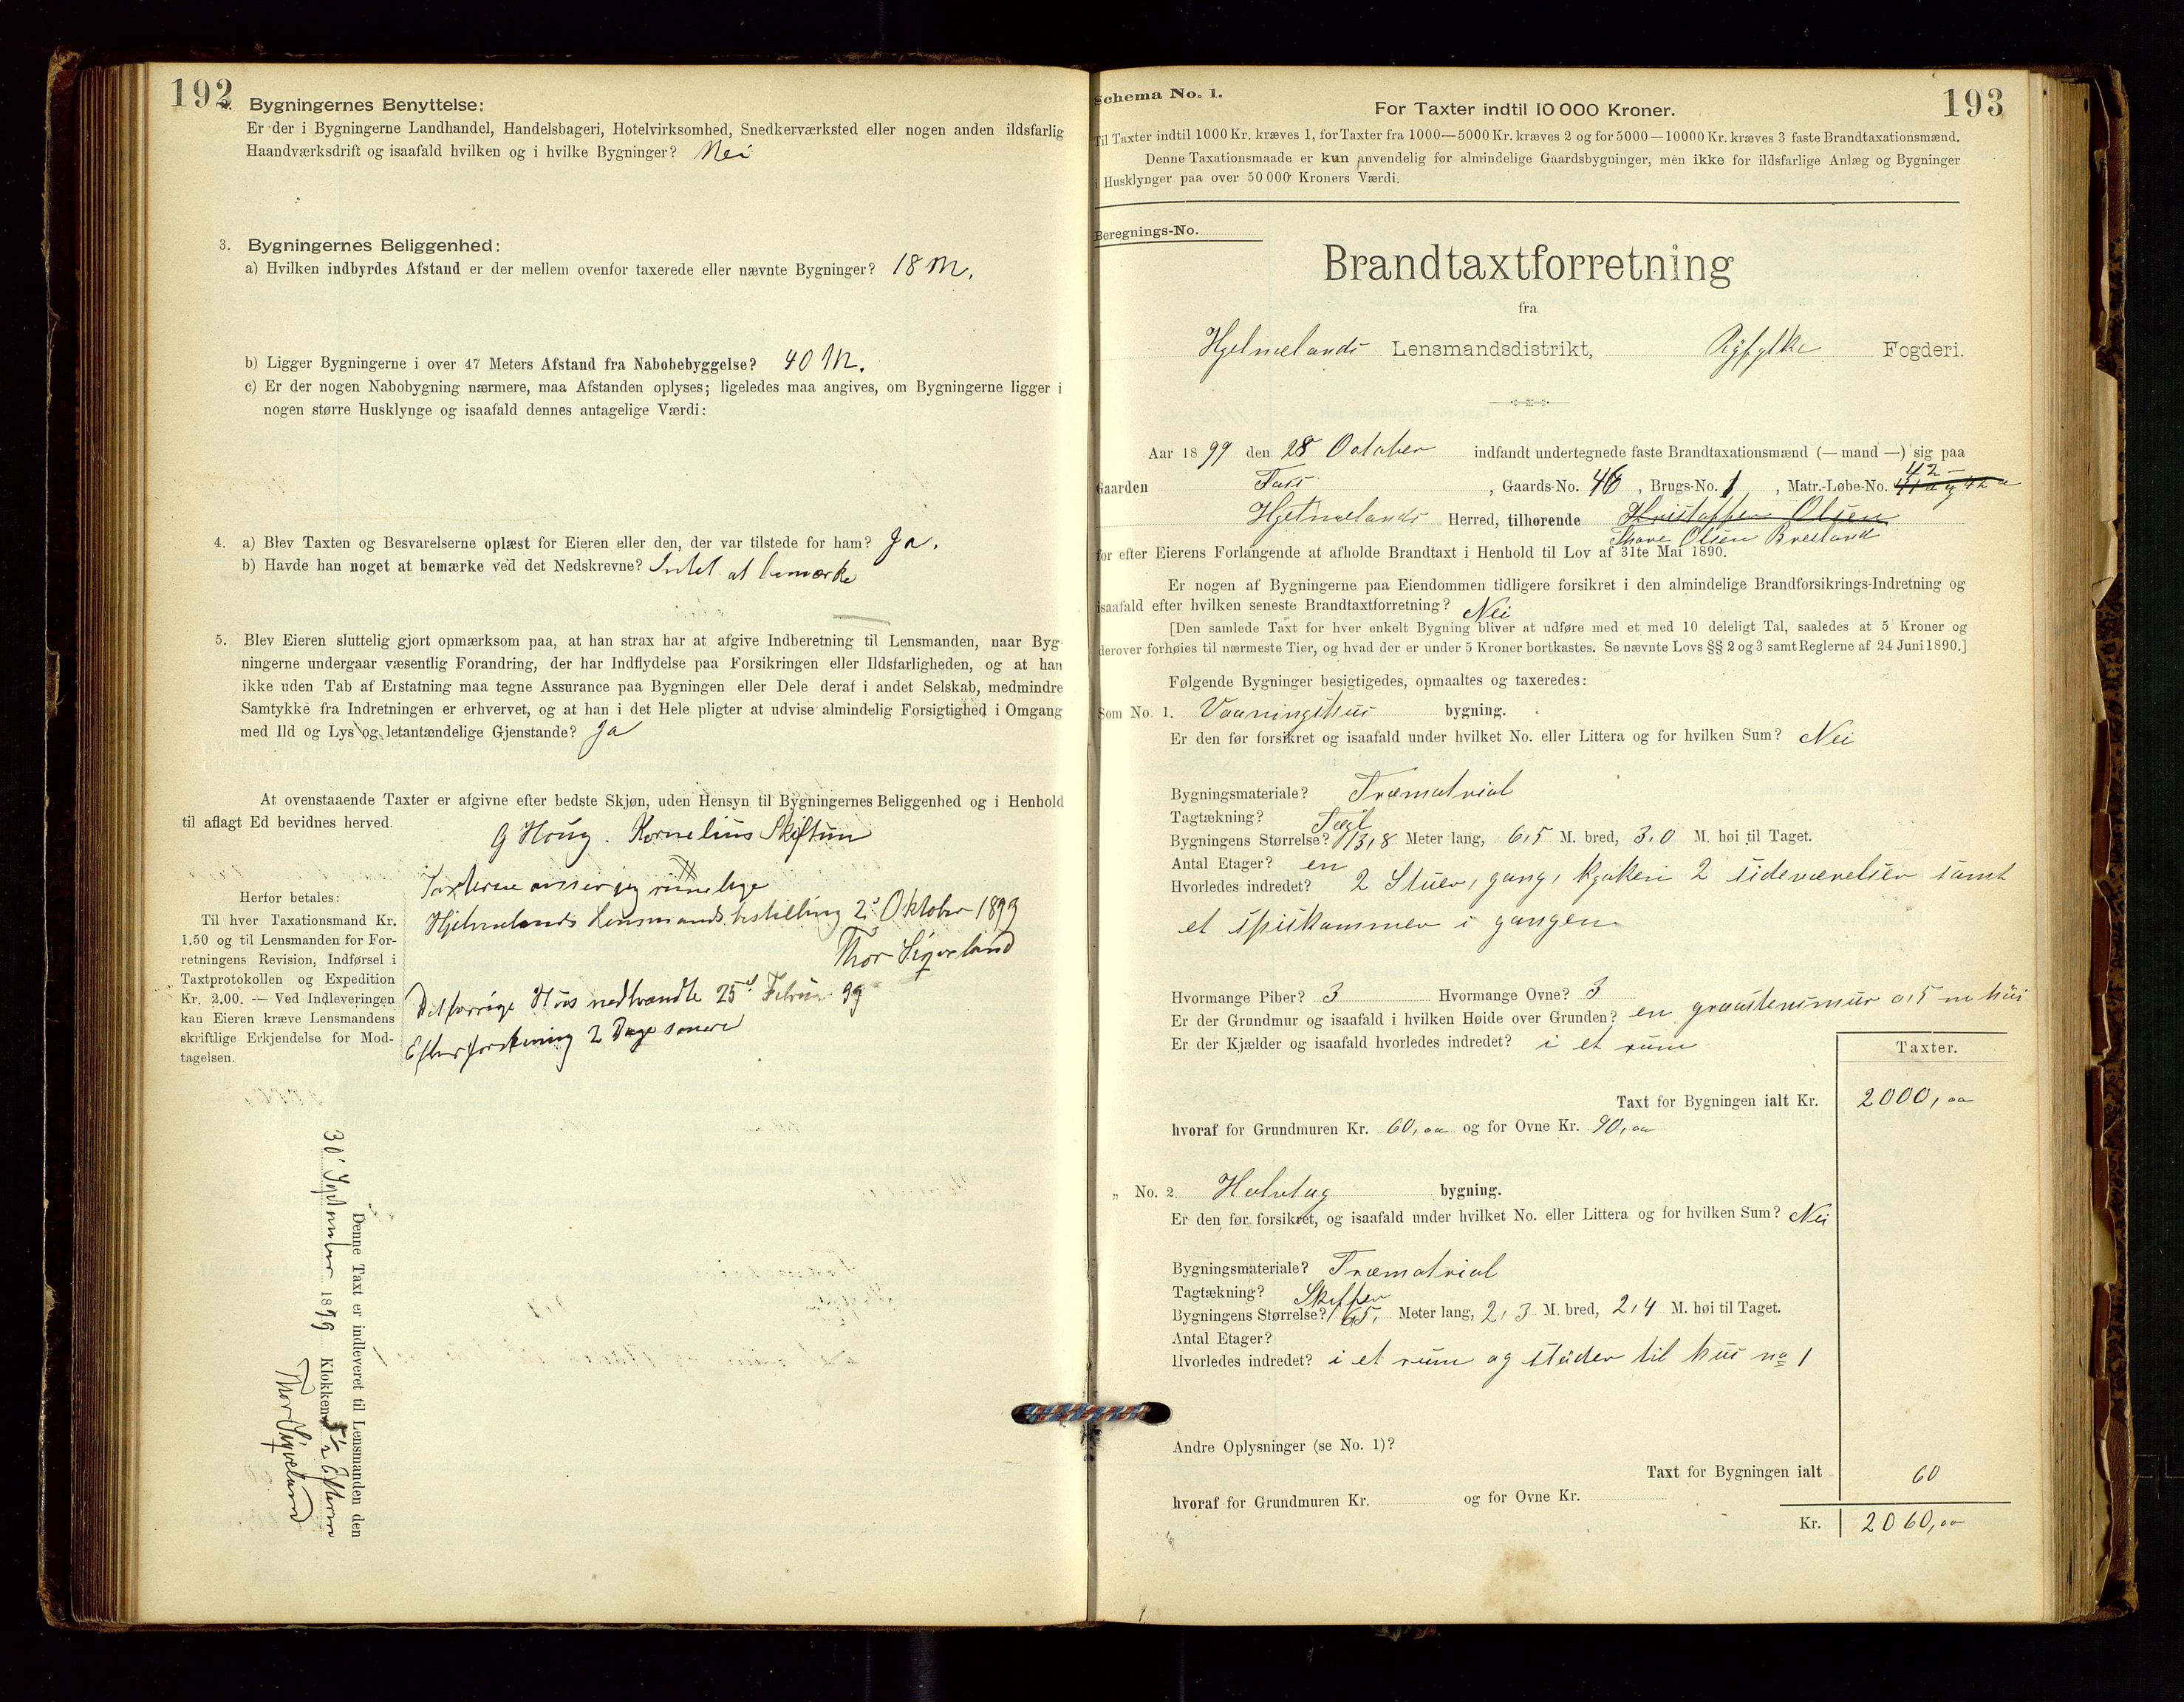 192
2. Bygningernes Benyttelse:
Er der i Bygningerne Landhandel, Handelsbageri, Hotelvirksomhed, Snedkerværksted eller nogen anden ildsfarlig
Haandværksdrift og isaafald hvilken og i hvilke Bygninger? Nei
3. Bygningernes Beliggenhed:
a) Hvilken indbyrdes Afstand er der mellem ovenfor taxerede eller nævnte Bygninger? 18 M.
b) Ligger Bygningerne i over 47 Meters Afstand fra Nabobebyggelse? 40 M.
c) Er der nogen Nabobygning nærmere, maa Afstanden oplyses; ligeledes maa angives, om Bygningerne ligger i
nogen større Husklynge og isaafald dennes antagelige Værdi:
4. a) Blev Taxten og Besvarelserne oplæst for Eieren eller den, der var tilstede for ham? Ja.
b) Havde han noget at bemærke ved det Nedskrevne? Intet at bemærke
5. Blev Eieren sluttelig gjort opmærksom paa, at han strax har at afgive Indberetning til Lensmanden, naar Byg-
ningerne undergaar væsentlig Forandring, der har Indflydelse paa Forsikringen eller Ildsfarligheden, og at han
ikke uden Tab af Erstatning maa tegne Assurance paa Bygningen eller Dele deraf i andet Selskab, medmindre
Samtykke fra Indretningen er erhvervet, og at han i det Hele pligter at udvise almindelig Forsigtighed i Omgang
med Ild og Lys og letantændelige Gjenstande? Ja
At ovenstaaende Taxter er afgivne efter bedste Skjøn, uden Hensyn til Bygningernes Beliggenhed og i Henhold
til aflagt Ed bevidnes herved.
G Houg. Kornelius Skiftun
Taxterne anser jeg rimelige
Hjelmelands Lensmandsbestilling 2' Oktober 1899
Thor Sigveland
Det forrige Hus nedbrændte 25d Februar 99
Efterforskning 2 Dage senere
Herfor betales:
Til hver Taxationsmand Kr.
1.50 og til Lensmanden for For-
retningens Revision, Indførsel i
Taxtprotokollen og Expedition
Kr. 2.00. — Ved Indleveringen
kan Eieren kræve Lensmandens
skriftlige Erkjendelse for Mod-
tagelsen.
Denne Taxt er indleveret til Lensmanden den
30' September 1899 Klokken 5 1/2 Efterm
Thor Sigveland
Schema No. 1.
193
For Taxter indtil 10 000 Kroner.
Til Taxter indtil 1000 Kr. kræves 1, for Taxter fra 1000—5000 Kr. kræves 2 og for 5000—10000 Kr. kræves 3 faste Brandtaxationsmænd.
Denne Taxationsmaade er kun anvendelig for almindelige Gaardsbygninger, men ikke for ildsfarlige Anlæg og Bygninger
i Husklynger paa over 50 000 Kroners Værdi.
Beregnings-No.
Brandtaxtforretning
fra
Hjelmelands Lensmandsdistrikt, Ryfylke Fogderi.
Aar 1899 den 28 October indfandt undertegnede faste Brandtaxationsmænd (— mand —) sig paa
42
Gaarden , Gaards-No. 46, Brugs-No. 1, Matr.-Løbe-No. 41a og 42a
Hjelmelands Herred, tilhørende Kristoffer Olsen
Thore Olsen Breiland
for efter Eierens Forlangende at afholde Brandtaxt i Henhold til Lov af 31te Mai 1890.
Er nogen af Bygningerne paa Eiendommen tidligere forsikret i den almindelige Brandforsikrings-Indretning og
isaafald efter hvilken seneste Brandtaxtforretning? Nei
[Den samlede Taxt for hver enkelt Bygning bliver at udføre med et med 10 deleligt Tal, saaledes at 5 Kroner og
derover forhøies til nærmeste Tier, og hvad der er under 5 Kroner bortkastes. Se nævnte Lovs §§ 2 og 3 samt Reglerne af 24 Juni 1890.]
Følgende Bygninger besigtigedes, opmaaltes og taxeredes:
Som No. 1. Vaaningshus bygning.
Er den før forsikret og isaafald under hvilket No. eller Littera og for hvilken Sum? Nei
Bygningsmateriale? Træmatrial
Tagtækning? Tagl
Bygningens Størrelse? 13,8 Meter lang, 6,5 M. bred, 3,0 M. høi til Taget.
Antal Etager? en
Hvorledes indredet? 2 Stuer, gang, kjøken 2 sideværelser samt
et spiskammer i gangen
Hvormange Piber? 3 Hvormange Ovne? 3
Er der Grundmur og isaafald i hvilken Høide over Grunden? en graastensmur 0,5 m høi
Er der Kjælder og isaafald hvorledes indredet? i et rum
Taxter.
Taxt for Bygningen ialt Kr. 2000,00
hvoraf for Grundmuren Kr. 60,00 og for Ovne Kr. 90,00
" No. 2. Halvtag bygning.
Er den før forsikret, og isaafald under hvilket No. eller Littera og for hvilken Sum? Nei
Bygningsmateriale? Træmatrial
Tagtækning? Skiffer
Bygningens Størrelse? 6,5, Meter lang, 2,3 M. bred, 2,4 M. høi til Taget.
Antal Etager?
Hvorledes indredet? i et rum og støder til hus no 1
Andre Oplysninger (se No. 1)?
Taxt for Bygningen ialt 60
hvoraf for Grundmuren Kr. og for Ovne Kr.
Kr. 2060,00